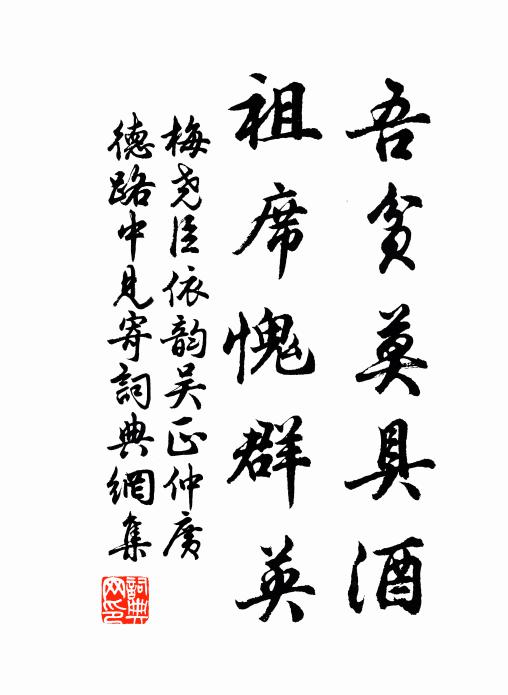 吾貧莫具酒
祖席愧群英
梅尧臣依韵吴正仲廣
德路中見寄詞典網集
詞典网印